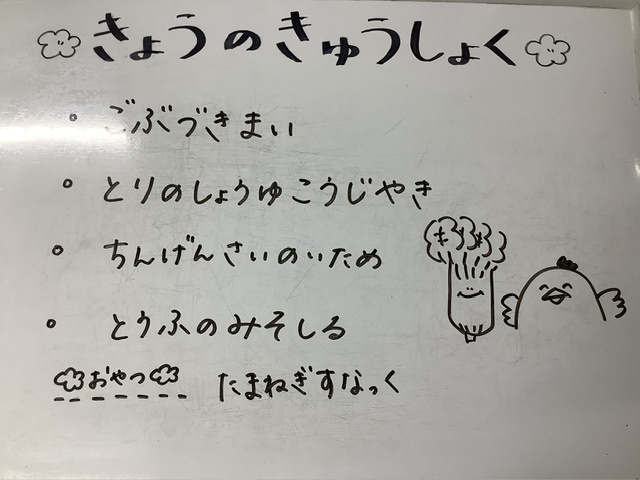 きょうのきゅうしょく
。ごぶづきまい
。とりのしょうゆこうじやき
。ちんげんさいのいため
。とうふのみそしる
おやつ たまねぎすなっく